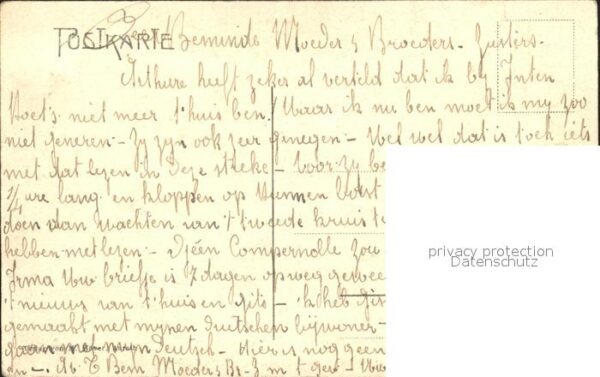 POSTKARTE
Zeer Beminde Moeder & Broeders - Zusters -
Arthure heeft zeker al verteld dat ik bij Inten
Hoet's niet meer t'huis ben! Waar ik nu ben moet ik mij zoo
niet generen - Zij zijn ook zeer genegen - Wel wel dat is toch iets
met dat lezen in deze streke - Voor zij be
1/4 ure lang en kloppen op hunnen borst
doen dan wachten van 't tweede kruis te
hebben met lezen - Djéén Compernolle zou
Irma Uw briefje is 7 dagen op weg gewee
't nieuws van 't huis en gits - 'k heb gis
gemaakt met mijnen duitschen bijwoner -
gaan met mijn Deutsch - Hier is nog geen
Bem Moeder & Br - Z m t ger - Uw
privacy protection
Datenschutz